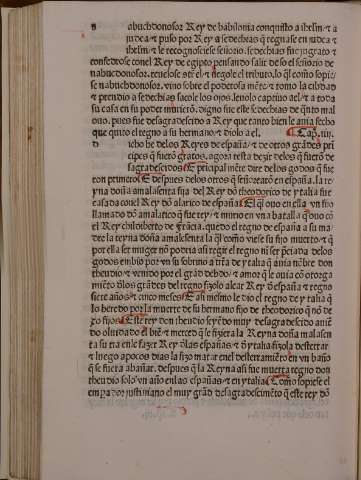 n abuchdonosor Rey de babilonia conquisto a ihrlm̄ ⁊ a
judea ⁊ puso por Rey a sedechias q̄ regnase en judea ⁊
ihrlm̄ ⁊ le recognosciese señorio. sedechias fue ingrato ⁊
confedrose conel Rey de egipto pensando salir de so el señorio de
nabuchdonosor. ⁊ negole el tributo. lo q̄l como sopie
se nabuchdonosor. vino sobre el poderosa mēte ⁊ tomo la cibdad
⁊ prendio a sedechias sacole los ojos. leuolo captiuo ael ⁊ a toda
su casa en su poder murierō. digno fue este sedechias de q̄nto mal
ouo. pues fue desagradescido a Rey que tanto bien le auia fecho
que quito el regno a su hermano ⁊ diolo a el. Cap̄. iiij.
d icho he delos Reyes de españa ⁊ de otros grādes pri
cipes q̄ fuerō gratos. agora resta dezir delos q̄ fuerō de
sagradescidos E principalmēte dire delos godos q̄ fue
ron primero E despues delos otros q̄ señorearō en españa. la re
yna doña amalasenta fija del Rey dō theodorico de ytalia fue
casada conel Rey dō alarico de españa El q̄l ouo en ella vn fijo
llamado dō amalarico q̄ fue rey ⁊ murio en vna batalla q̄ ouo cō
el Rey childiberto de frācia. quedo el regno de españa a su ma
dre la reyna doña amalasenta la q̄l como viese su fijo muerto ⁊ q̄
por ella ser muger no podria asi regir el regno ni ser pciada delos
godos embio por vn su sobrino a trā de ytalia q̄ auia nōbre don
theudio ⁊ venido por el grād debdo ⁊ amor q̄ le auia cō otorga
miēto d'los grādes del regno fizolo alçar Rey d' españa ⁊ regno
siete años ⁊ cinco meses E asi mesmo le dio el regno de ytalia q̄
lo heredo por la muerte de su hermano fijo de theodorico q̄ nō de
xo fijos Este rey don theudio seyēdo muy desagradescido auiē
do oluidado el biē ⁊ merced q̄ le fiziera la Reyna doña amalasen
ta su tia enle fazer Rey d'las españas ⁊ d' ytalia fizola desterrar
⁊ luego apocos dias la fizo matar enel desterramiēto en vn baño
q̄ se fuera abañar. despues que la Reyna asi fue muerta regno don
theudio solo vn año enlas españas ⁊ en ytalia Como sopiese el
emperador justiniano el muy grād desagradescimēto q̄ este rey dō